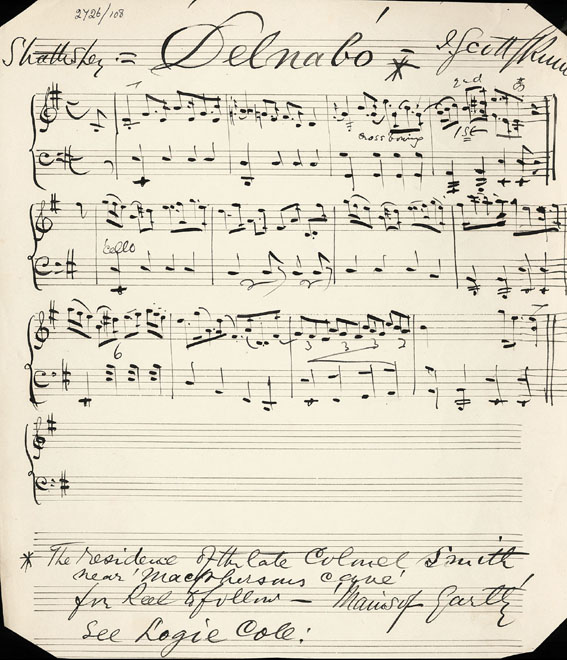 2726/108
Strathspey = Delnabo = J. Scott Skinn
2nd
crossbowing 1st
Cello
6
3 3 3 3
* The residence of the late Colonel Smith
near 'Macphersons cave'
for Reel to follow — 'Mains of Gartly'
See Logie Coll: